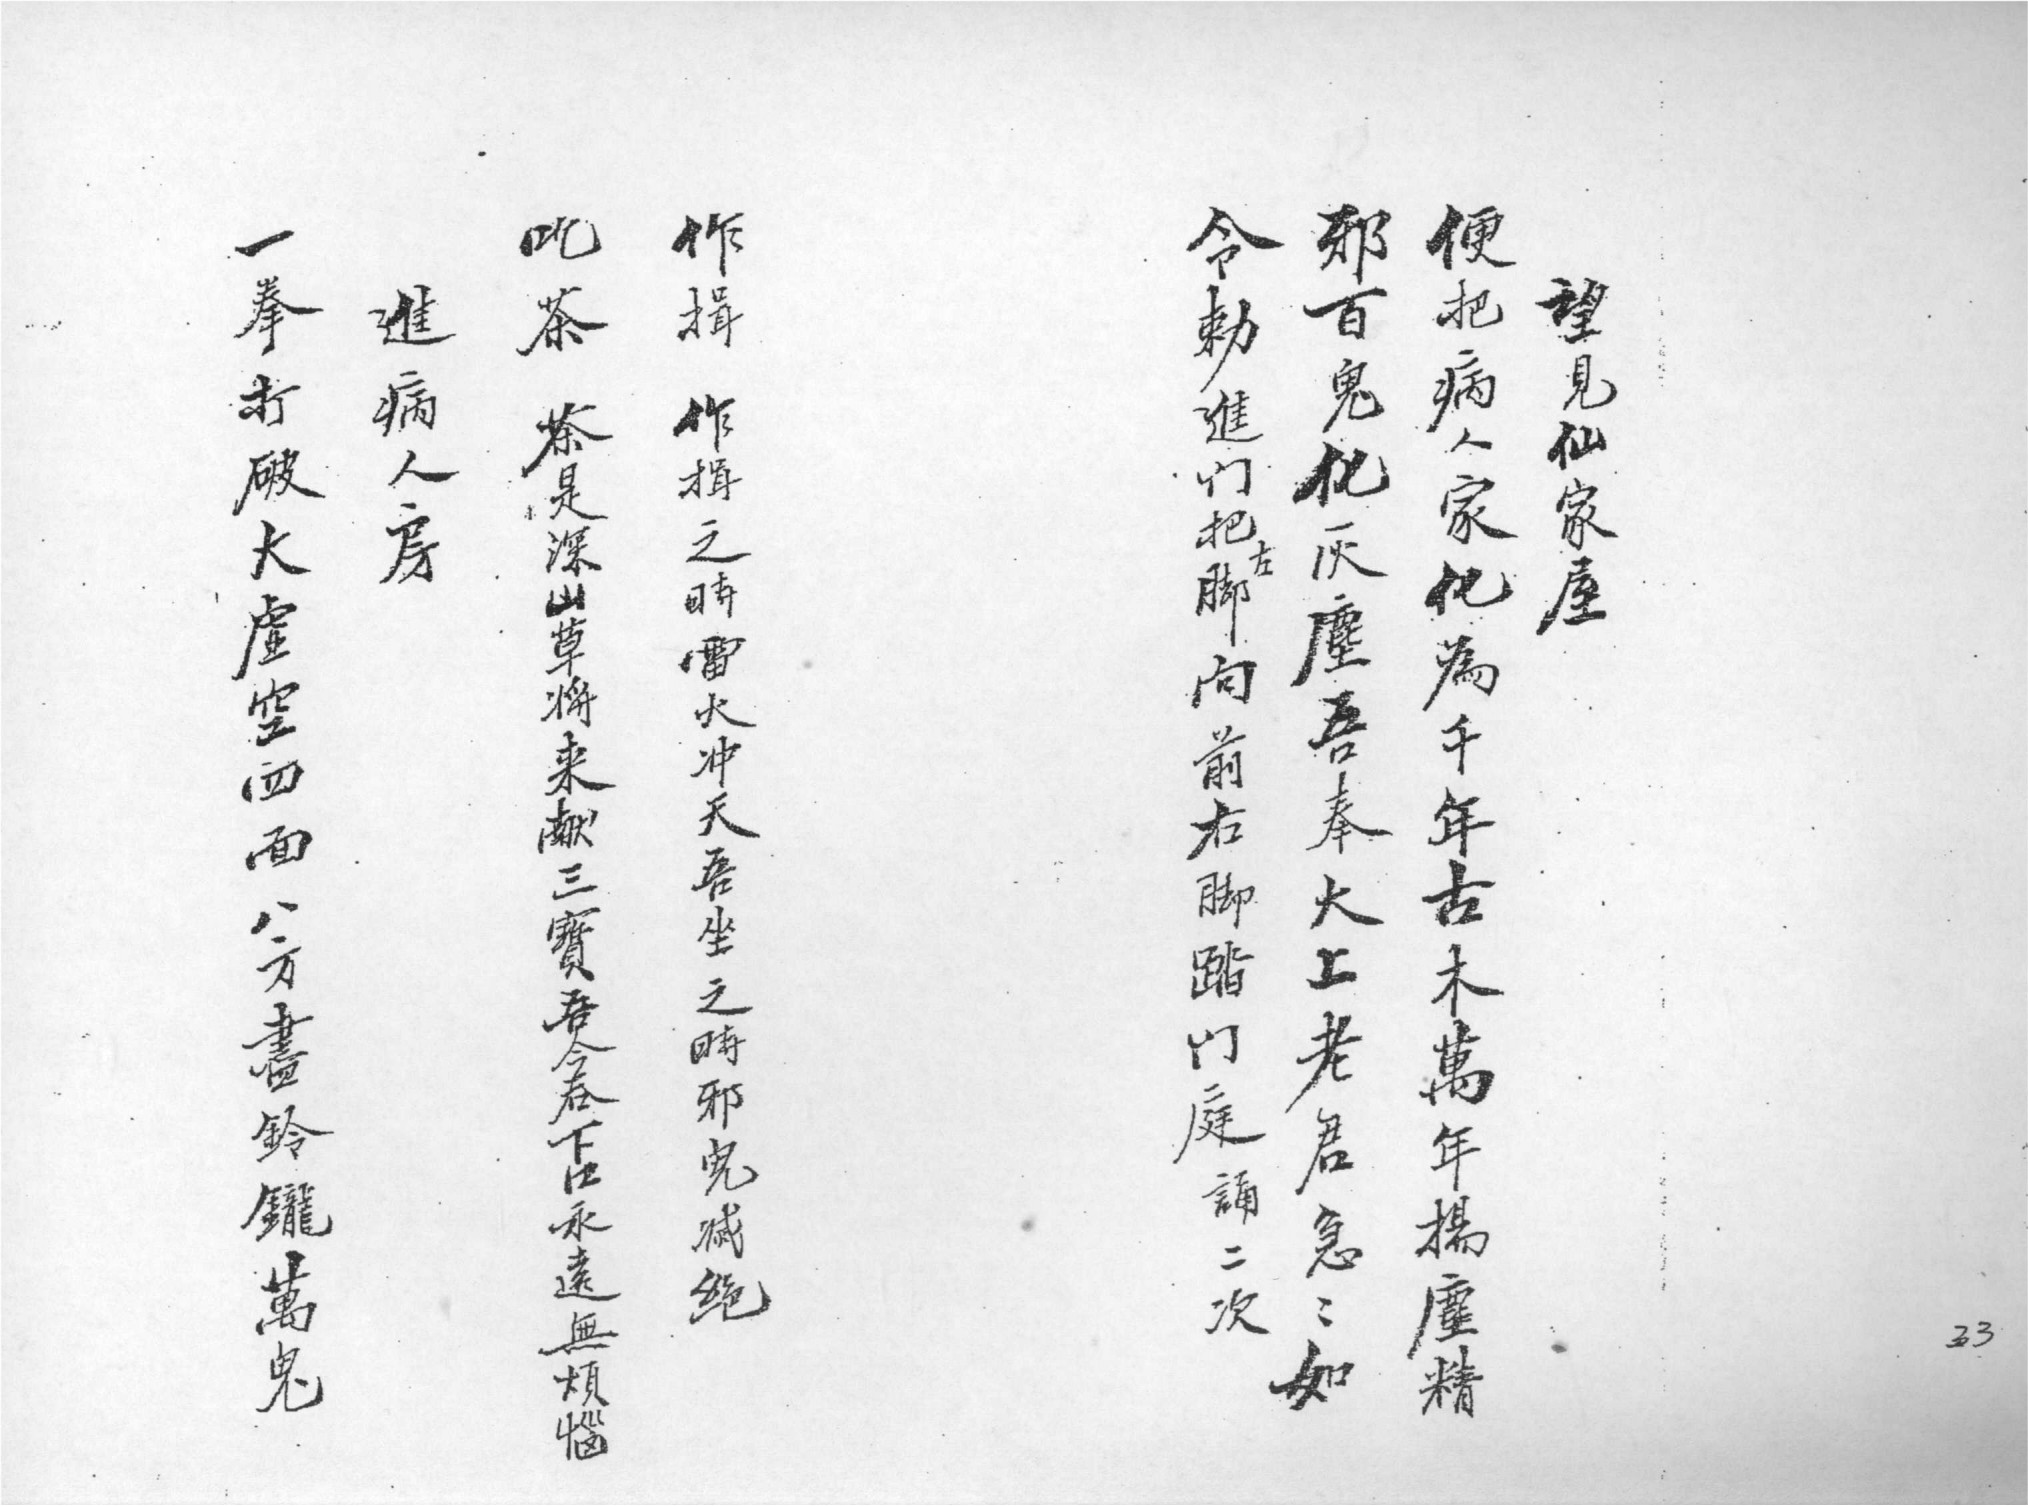 望見仙家屋
便把病人家化為千年古木萬年揚塵精
邪百鬼化灰塵吾奉大上老君急〻如
令勅進門把左脚向前右脚踏門庭誦二次
作揖 作揖之時雷火冲天吾坐之時邪鬼滅絕
吃茶 茶是深山草将来献三寳吾今吞下口永遠無煩惱
進病人房
一拳打破大虛空四面八方盡鈴鑨萬鬼
33